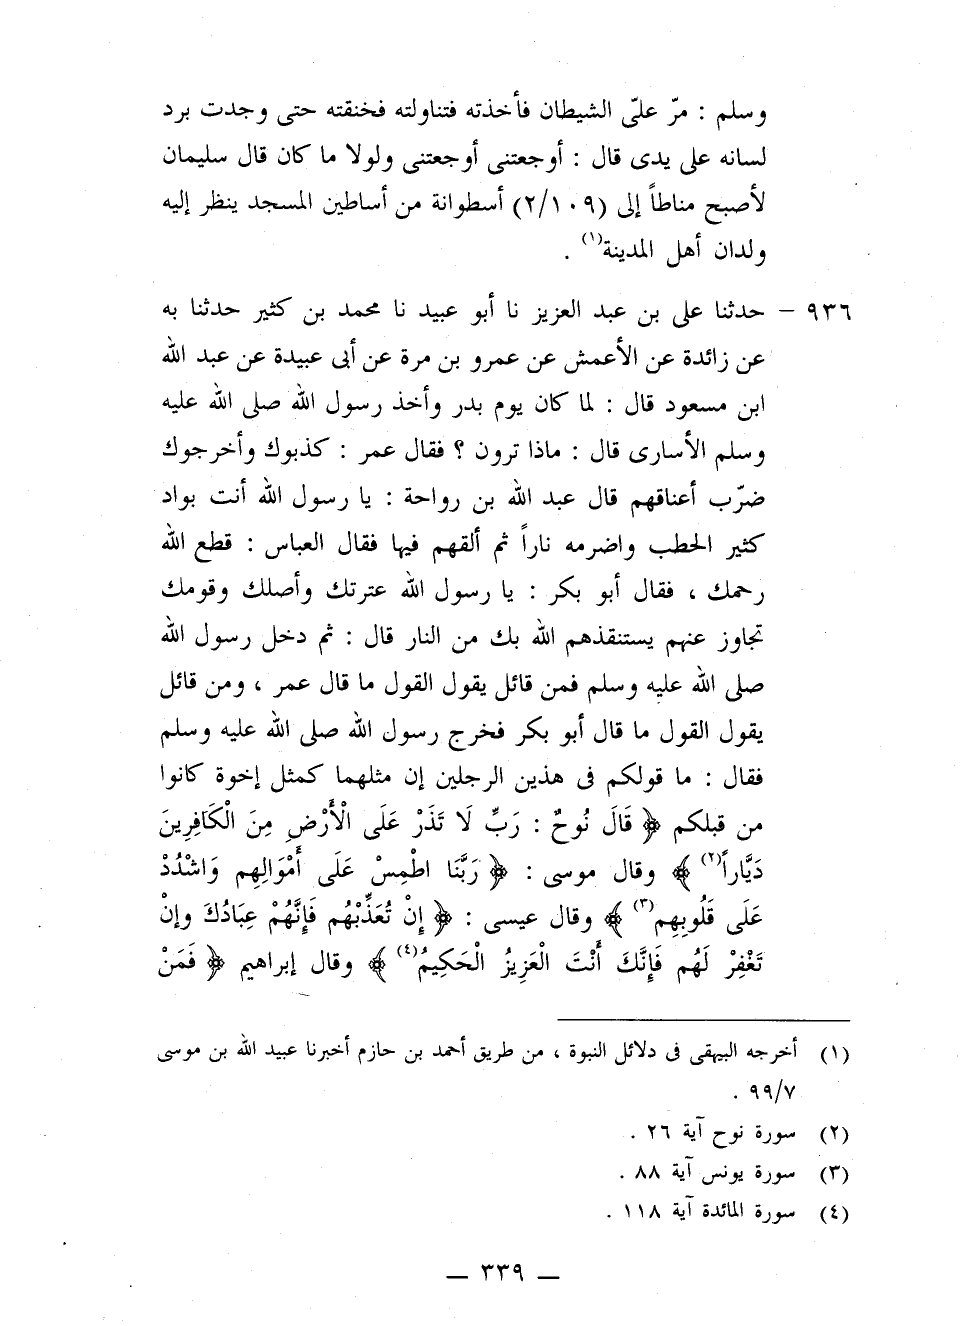 وسلم : مرّ علىّ الشيطان فأخذته فتناولته فخنقته حتى وجدت برد
لسانه على يدى قال : أوجعتنى أوجعتنى ولولا ما كان قال سليمان
لأصبح مناطاً إلى (٢/١٠٩) أسطوانة من أساطين المسجد ينظر إليه
ولدان أهل المدينة(١) .
٩٣٦ – حدثنا على بن عبد العزيز نا أبو عبيد نا محمد بن كثير حدثنا به
عن زائدة عن الأعمش عن عمرو بن مرة عن أبى عبيدة عن عبد الله
ابن مسعود قال : لما كان يوم بدر وأخذ رسول الله صلى الله عليه
وسلم الأسارى قال : ماذا ترون ؟ فقال عمر : كذبوك وأخرجوك
ضرّب أعناقهم قال عبد الله بن رواحة : يا رسول الله أنت بواد
كثير الحطب واضرمه ناراً ثم ألقهم فيها فقال العباس : قطع الله
رحمك ، فقال أبو بكر : يا رسول الله عترتك وأصلك وقومك
تجاوز عنهم يستنقذهم الله بك من النار قال : ثم دخل رسول الله
صلى الله عليه وسلم فمن قائل يقول القول ما قال عمر ، ومن قائل
يقول القول ما قال أبو بكر فخرج رسول الله صلى الله عليه وسلم
فقال : ما قولكم فى هذين الرجلين إن مثلهما كمثل إخوة كانوا
من قبلكم ﴿ قَالَ نُوحٌ : رَبِّ لَا تَذَرْ عَلَى الْأَرْضِ مِنَ الْكَافِرِينَ
دَيَّاراً(٢) ﴾ وقال موسى : ﴿ رَبَّنَا اطْمِسْ عَلَى أَمْوَالِهِم وَاشْدُدْ
عَلَى قُلُوبِهِم(٣) ﴾ وقال عيسى : ﴿ إِنْ تُعَذِّبْهُم فَإِنَّهُمْ عِبَادُكَ وإنْ
تَغْفِرْ لَهُم فَإِنَّكَ أَنْتَ الْعَزِيزُ الْحَكِيمُ(٤) ﴾ وقال إبراهيم ﴿ فَمَنْ
(١) أخرجه البيهقى فى دلائل النبوة ، من طريق أحمد بن حازم أخبرنا عبيد الله بن موسى
٩٩/٧ .
(٢) سورة نوح آية ٢٦ .
(٣) سورة يونس آية ٨٨ .
(٤) سورة المائدة آية ١١٨ .
— ٣٣٩ —